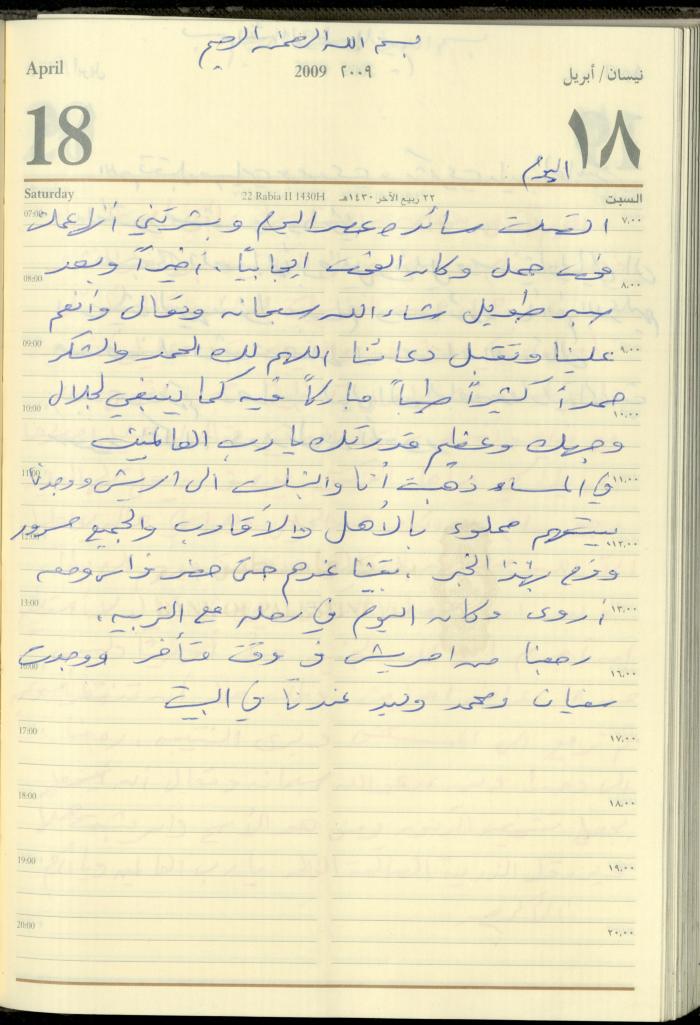 بسم الله الرحمن الرحيم
April 2009 ٢٠٠٩ نيسان/أبريل
18 ١٨
اليوم
Saturday 22 Rabia II 1430H ٢٢ ربيع الآخر ١٤٣٠هـ السبت
07:00 ٧,٠٠
اتصلت سائده عصر اليوم وبشرتني أنها عملت
فحص حمل وكان الفحص ايجابياً . أخيراً وبعد
08:00 ٨,٠٠
صبر طويل شاء الله سبحانه وتعالى وأنعم
علينا وتقبل دعائنا اللهم لك الحمد والشكر
09:00 ٩,٠٠
حمداً كثيراً طيباً مباركاً فيه كما ينبغي لجلال
10:00 ١٠,٠٠
وجهك وعظيم قدرتك يا رب العالمين
في المساء ذهبت أنا والبنات الى ووجدنا
11:00 ١١,٠٠
بيتهم مملوء بالأهل والأقارب والجميع مسرور
١٢,٠٠
وفرح بهذا الخبر . بقينا عندهم حتى حضر فراس ومعه
13:00 ١٣,٠٠
أروى وكان اليوم في رحله مع التربيه .
رجعنا من في وقت متأخر ووجدت
16:00 ١٦,٠٠
سفيان ومحمد وليد عندنا في البيت
17:00 ١٧,٠٠
18:00 ١٨,٠٠
19:00 ١٩,٠٠
20:00 ٢٠,٠٠